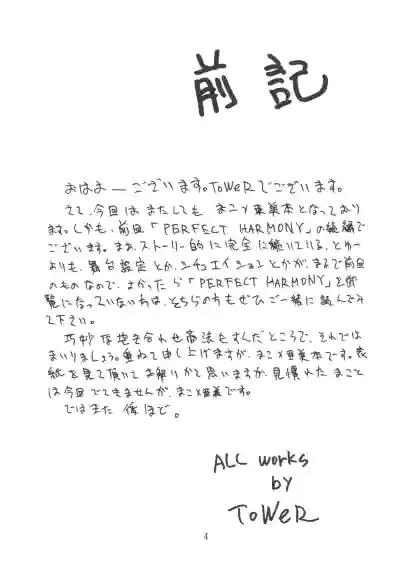 前記
おはよーございます。ToWeRでございます。
さて、今回はまたしても まこ×亜美本となっており
ます。しかも、前回「PERFECT HARMONY」の続編で
ございます。まあ、ストーリー的に完全に続いている、とゆー
よりも、舞台設定とか、シチュエイションとかが、まるで前回
のものなので、よかったら「PERFECT HARMONY」を御
覧になっていない方は、そちらの方もぜひご一緒に読んでみ
て下さい。
巧妙な抱き合わせ商法もすんだところで、それでは
まいりましょう。重ねて申し上げますが、まこ×亜美本です。表
紙を見て頂いてお解りかと思いますが、見慣れたまことは
は今回でてきませんが、まこ×亜美です。
ではまた 後ほど。
ALL works
by
ToWeR
4